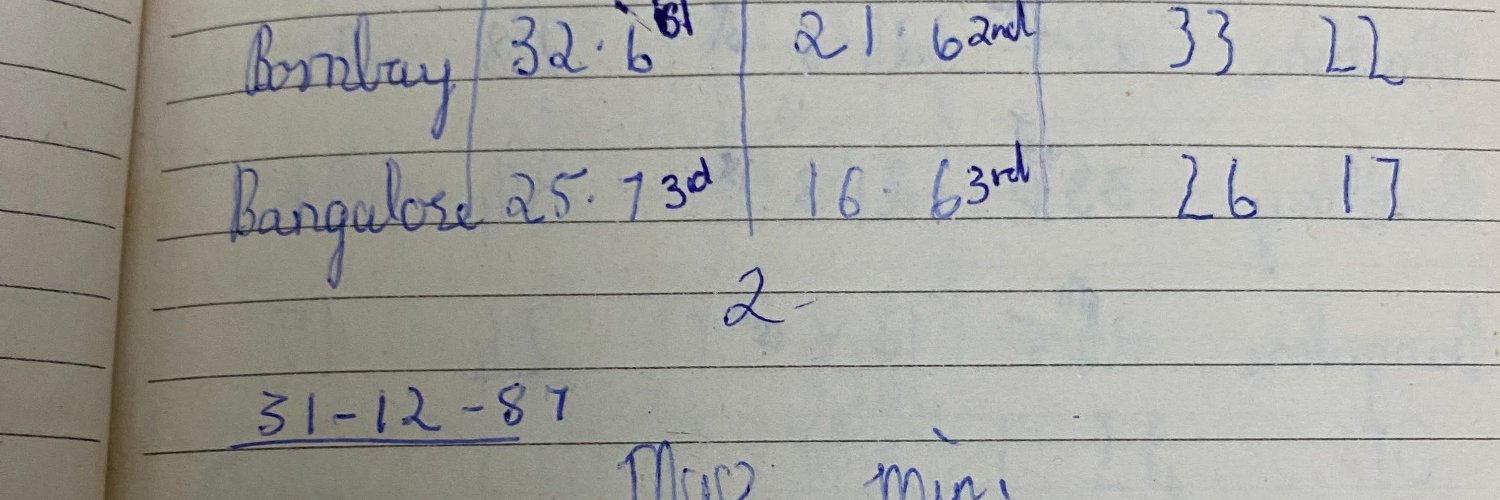 Bombay 32.6 21.6 2nd 33 22
Bangalore 25.7 3rd 16.6 3rd 26 17
2-
31-12-87
Max mini